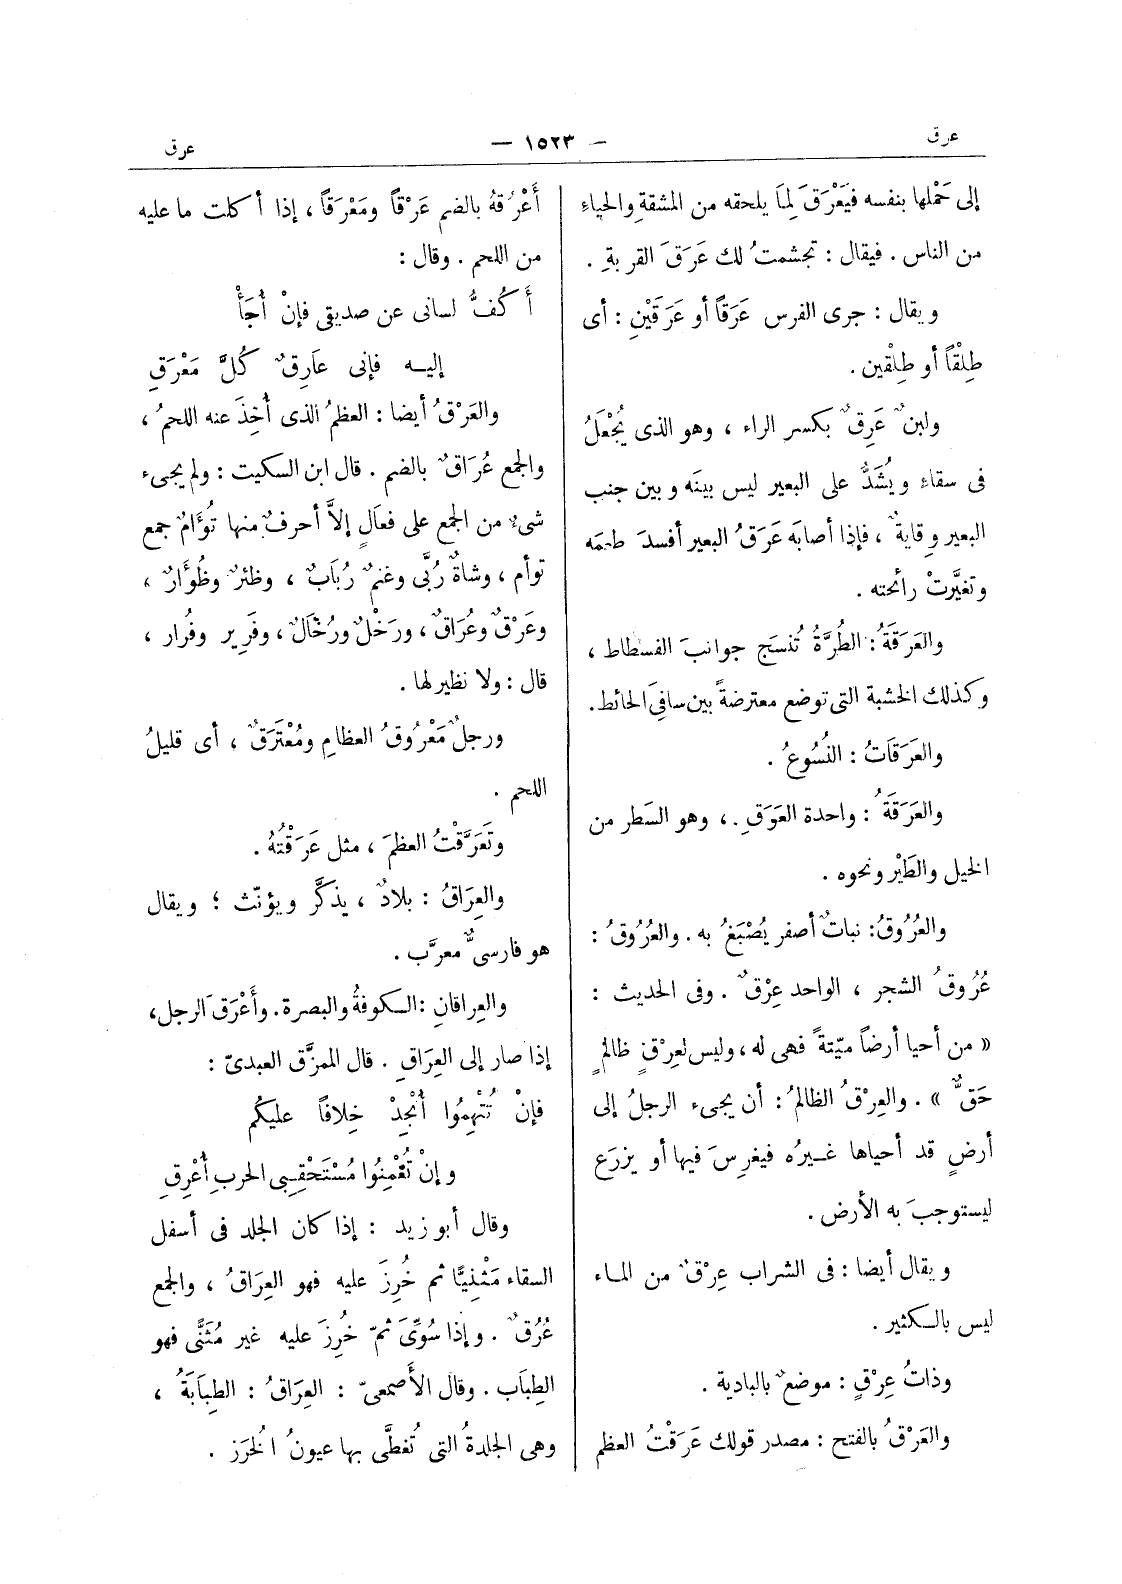 عرق
— ١٥٢٣ —
عرق
إلى حَمْلها بنفسه فيَعْرَقَ لِمَا يلحقه من المشقةِ والحياءِ
من الناس . فيقال : تجشمتُ لك عَرَقَ القربةِ .
ويقال : جرى الفرس عَرَقًا أو عَرَقَيْنِ : أى
طِلْقًا أو طِلْقين .
ولبنٌ عَرِقٌ بكسر الراء ، وهو الذى يُجْعَلُ
فى سقاءٍ ويُشَدُّ على البعير ليس بينَه وبين جنب
البعير وِقايةٌ ، فإذا أصابَه عَرَقُ البعير أفسدَ طعمَه
وتغيَّرتْ رائحته .
والعَرَقَةُ : الطُرَّةُ تُنسَج جوانبَ الفسطاط ،
وكذلك الخشبة التى توضع معترضةً بين سافَىِ الحائط .
والعَرَقَاتُ : النُسُوعُ .
والعَرَقَةُ : واحدة العَرَقِ ، وهو السَطر من
الخيل والطَيْر ونحوه .
والعُرُوقُ : نباتٌ أصفر يُصْبَغُ به . والعُرُوقُ :
عُرُوقُ الشجر ، الواحد عِرْقٌ . وفى الحديث :
« من أحيا أرضاً ميّتةً فهى له ، وليس لعِرْقٍ ظالمٍ
حَقٌّ » . والعِرْقُ الظالمُ : أن يجىء الرجلُ إلى
أرضٍ قد أحياها غيرُه فيغرِسَ فيها أو يزرَع
ليستوجبَ به الأرض .
ويقال أيضا : فى الشراب عِرْقٌ من الماء
ليس بالكثير .
وذاتُ عِرْقٍ : موضعٌ بالبادية .
والعَرْقُ بالفتح : مصدر قولك عَرَقْتُ العظم
أَعْرُقهُ بالضم عَرْقاً ومَعْرَقاً ، إذا أكلت ما عليه
من اللحم . وقال :
أَكُفُّ لسانى عن صديقى فإنْ أُجَأْ
إليه فإنى عَارِقٌ كُلَّ مَعْرَقِ
والعَرْقُ أيضا : العظمُ الذى أُخِذَ عنه اللحمُ ،
والجمع عُرَاقٌ بالضم . قال ابن السكيت : ولم يجىء
شىءٌ من الجمع على فعالٍ إلاَّ أحرفٌ منها تُؤَامٌ جمع
توأم ، وشاةٌ رُبَّى وغنمٌ رُبَابٌ ، وظئرٌ وظُوَّارٌ ،
وعَرْقٌ وعُرَاقٌ ، ورَخْلٌ ورُخَالٌ ، وفَرِير وفُرار ،
قال : ولا نظير لها .
ورجلٌ مَعْرُوقُ العظامِ ومُعْتَرَقٌ ، أى قليلُ
اللحم .
وتَعَرَّقْتُ العظمَ ، مثل عَرَقْتُهُ .
والعِرَاقُ : بلادٌ ، يذكَّر ويؤنّث ؛ ويقال
هو فارسىٌّ معرَّب .
والعِراقانِ : الكوفةُ والبصرة . وأَعْرَقَ الرجل ،
إذا صار إلى العِرَاقِ . قال الممزَّق العبدىّ :
فإنْ تُتْهِمُوا أُنْجِدْ خِلافاً عليكُم
وإنْ تُعْمِنُوا مُسْتَحْقِبِى الحربِ أُعْرِقِ
وقال أبو زيد : إذا كان الجلد فى أسفل
السقاء مَثْنِيًّا ثم خُرِزَ عليه فهو العِرَاقُ ، والجمع
عُرُقٌ . وإذا سُوِّىَ ثمّ خُرِزَ عليه غير مُثَنًّى فهو
الطِبَاب . وقال الأَصمعىّ : العِرَاقُ : الطِبَابَةُ ،
وهى الجلدةُ التى تُغطَّى بها عيونُ الخُرَز .